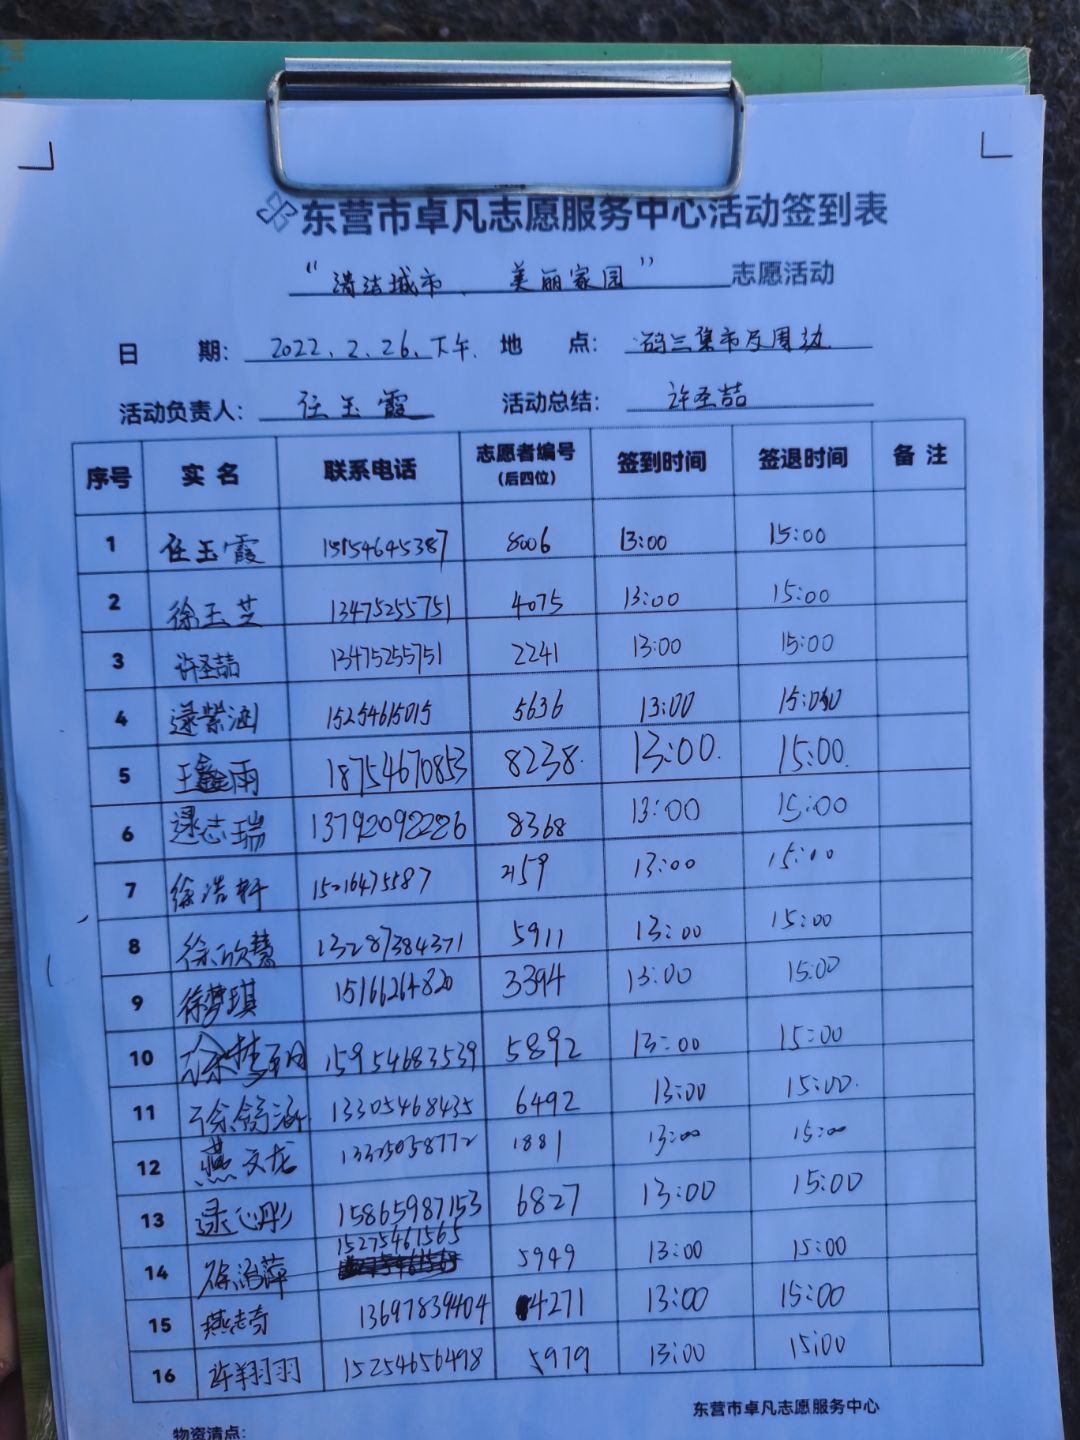 东营市卓凡志愿服务中心活动签到表
“清洁城市、美丽家园” 志愿活动
日 期: 2022.2.26.下午. 地 点: 码三集市及周边
活动负责人: 任玉霞 活动总结: 许圣喆
序号 实名 联系电话 志愿者编号(后四位) 签到时间 签退时间 备注
1 任玉霞 15154645387 8006 13:00 15:00
2 徐玉芝 13475255751 4075 13:00 15:00
3 许圣喆 13475255751 2241 13:00 15:00
4 逯紫涵 15254615015 5636 13:00 15:00
5 王鑫雨 18754670853 8238. 13:00. 15:00.
6 逯志瑞 13792092226 8368 13:00 15:00
7 徐浩轩 2159 13:00 15:00
8 徐欣慧 13287384371 5911 13:00 15:00
9 徐梦琪 15166264820 3394 13:00 15:00
10 徐梦 15954683539 5892 13:00 15:00
11 徐舒涵 13305468435 6492 13:00 15:00.
12 燕文龙 13325058772 1881 13:00 15:00
13 逯心彤 15865987153 6827 13:00 15:00
14 徐治萍 15275461565 5949 13:00 15:00
15 燕志奇 13697839404 4271 13:00 15:00
16 许翔羽 15254656498 5979 13:00 15:00
东营市卓凡志愿服务中心
物资清点: